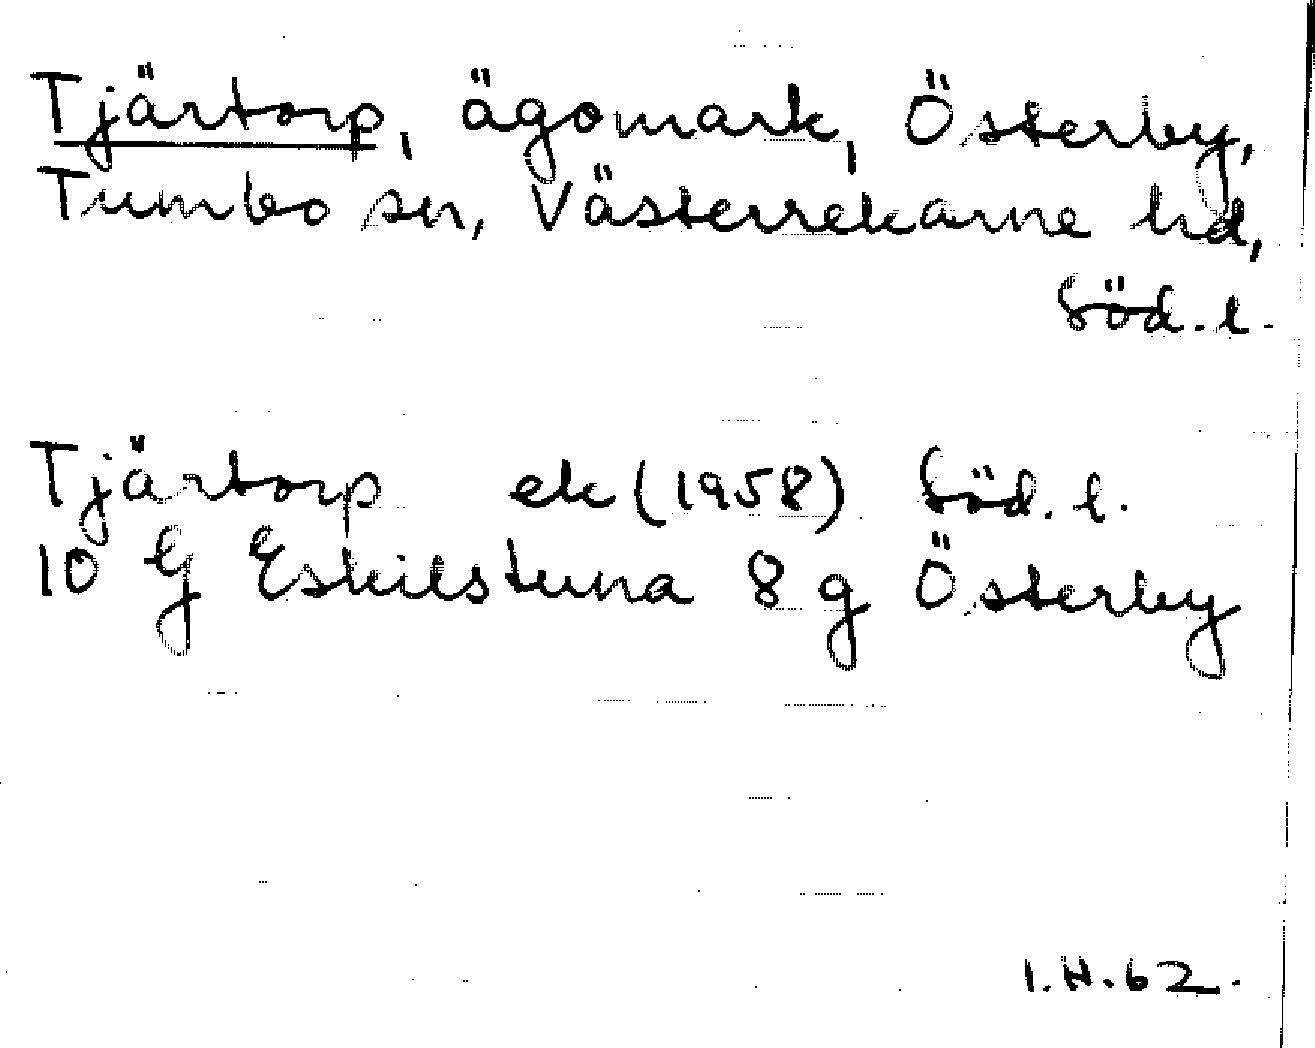 Tjärtorp, ägomark, Österby,
Tumbo sn, Västerrekarne hd,
Söd. l.
Tjärtorp ek (1958) Söd. l.
10 G Eskilstuna 8 g Österby
I.H.62.